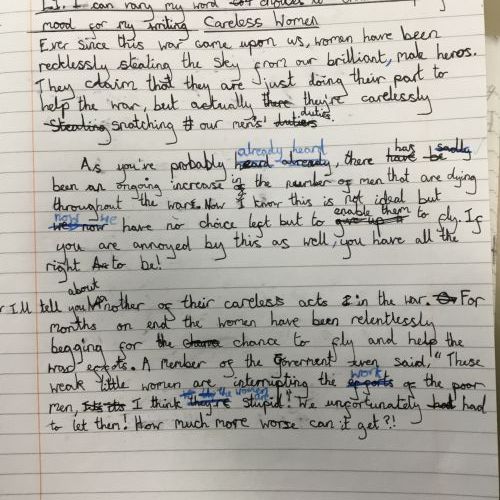 LI: I can vary my word choices to
mood for my writing Careless Women
Ever since this war came upon us, women have been
recklessly stealing the sky from our brilliant, male heros.
They claim that they are just doing their part to
help the war, but actually there they're carelessly
Stealing snatching # our mens' duties duties.
already heard
As you're probably heard already, there have be has sadly
been an ongoing increase in of the number of men that are dying
throughout the war. Now I know this is not ideal but
now we
we now have no choice left but to give up # enable them to fly. If
you are annoyed by this as well, you have all the
right to be!
about
I'll tell you Another of their careless acts in the war. For
months on end the women have been relentlessly
begging for the chance chance to fly and help the
war efforts. A member of the Goverment even said, "These
weak little women are interrupting the efforts work of the poor
men, I think they're the women stupid!" We unfortunately had had
to let them! How much more worse can it get?!